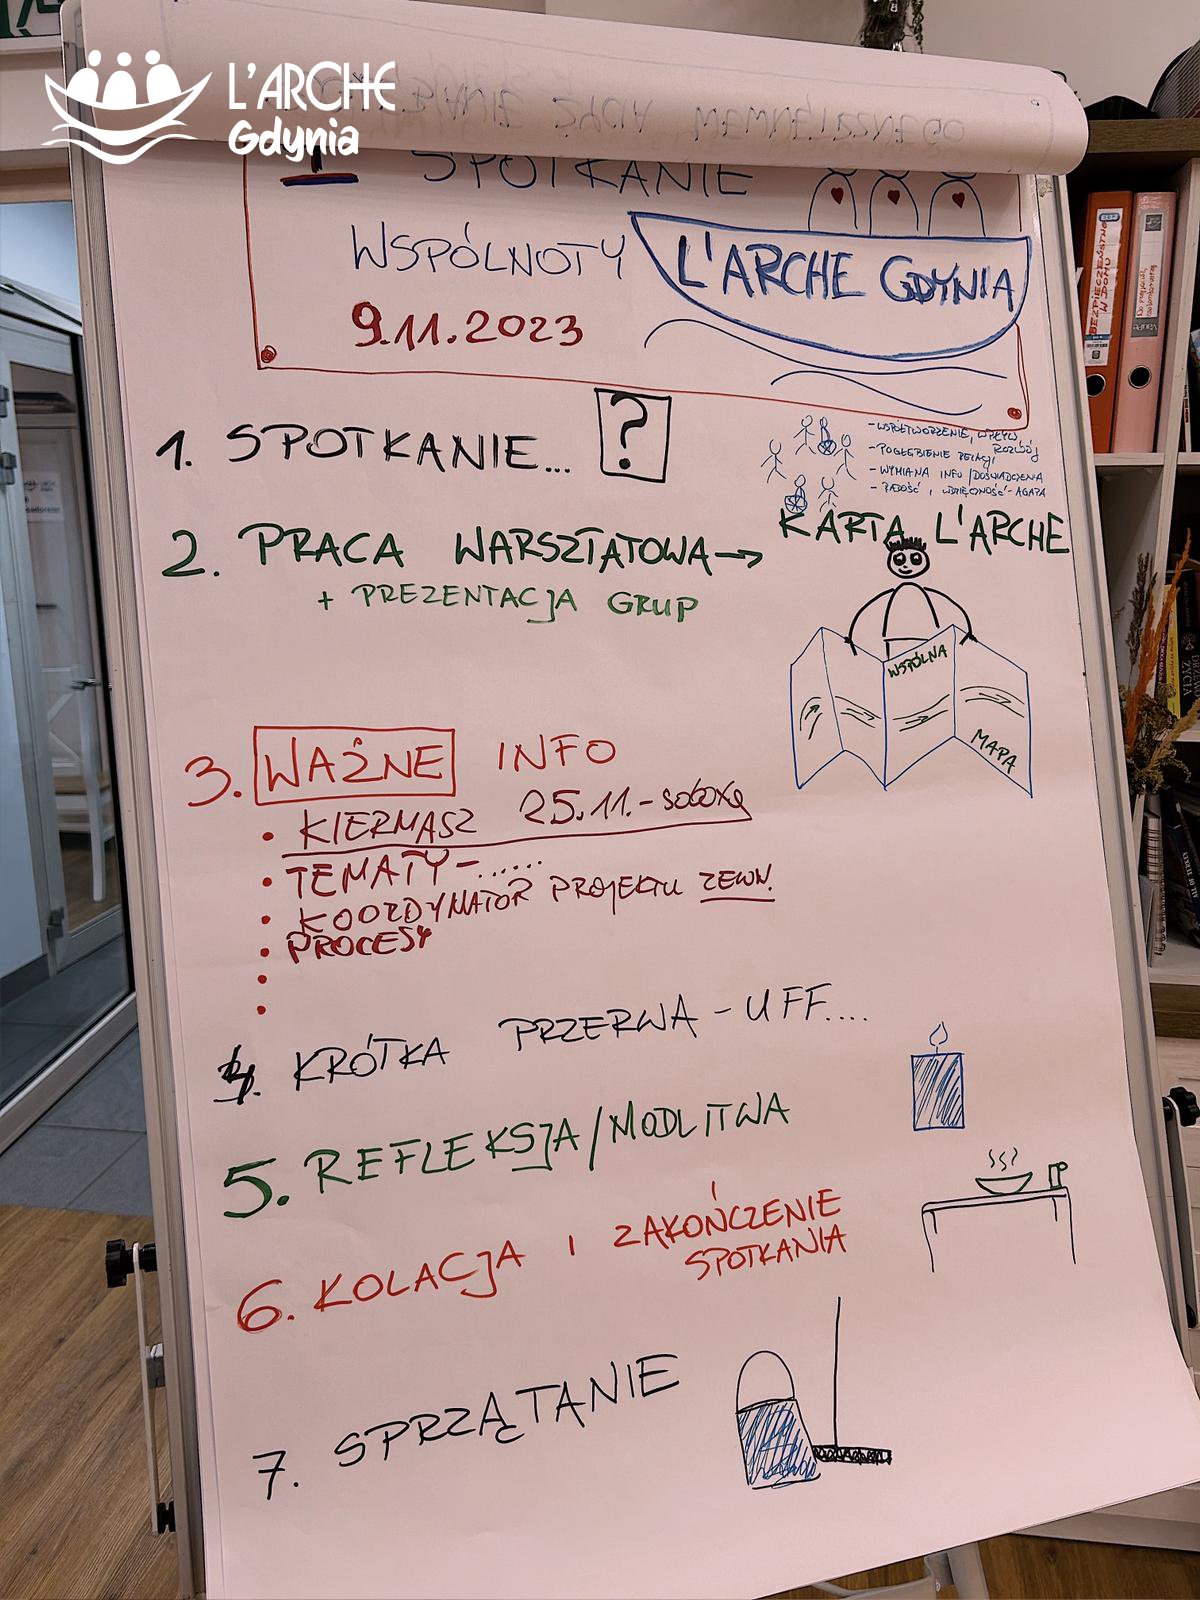 L'ARCHE
Gdynia
SPOTKANIE
WSPÓLNOTY
L'ARCHE GDYNIA
9.11.2023
1. SPOTKANIE... ?
- WSPÓŁTWORZENIE, WPŁYW,
ROZWÓJ
- POGŁĘBIENIE RELACJI
- WYMIANA INFO/DOŚWIADCZENIA
- RADOŚĆ I WDZIĘCZNOŚĆ - AGAPA
2. PRACA WARSZTATOWA → KARTA L'ARCHE
+ PREZENTACJA GRUP
WSPÓLNA
MAPA
3. WAŻNE INFO
• KIERMASZ 25.11. - sobota
• TEMATY - ......
• KOORDYNATOR PROJEKTU ZEWN.
• PROCESY
•
•
4. KRÓTKA PRZERWA - UFF....
5. REFLEKSJA/MODLITWA
6. KOLACJA I ZAKOŃCZENIE
SPOTKANIA
7. SPRZĄTANIE
BEZPIECZEŃSTWO
W DOMU